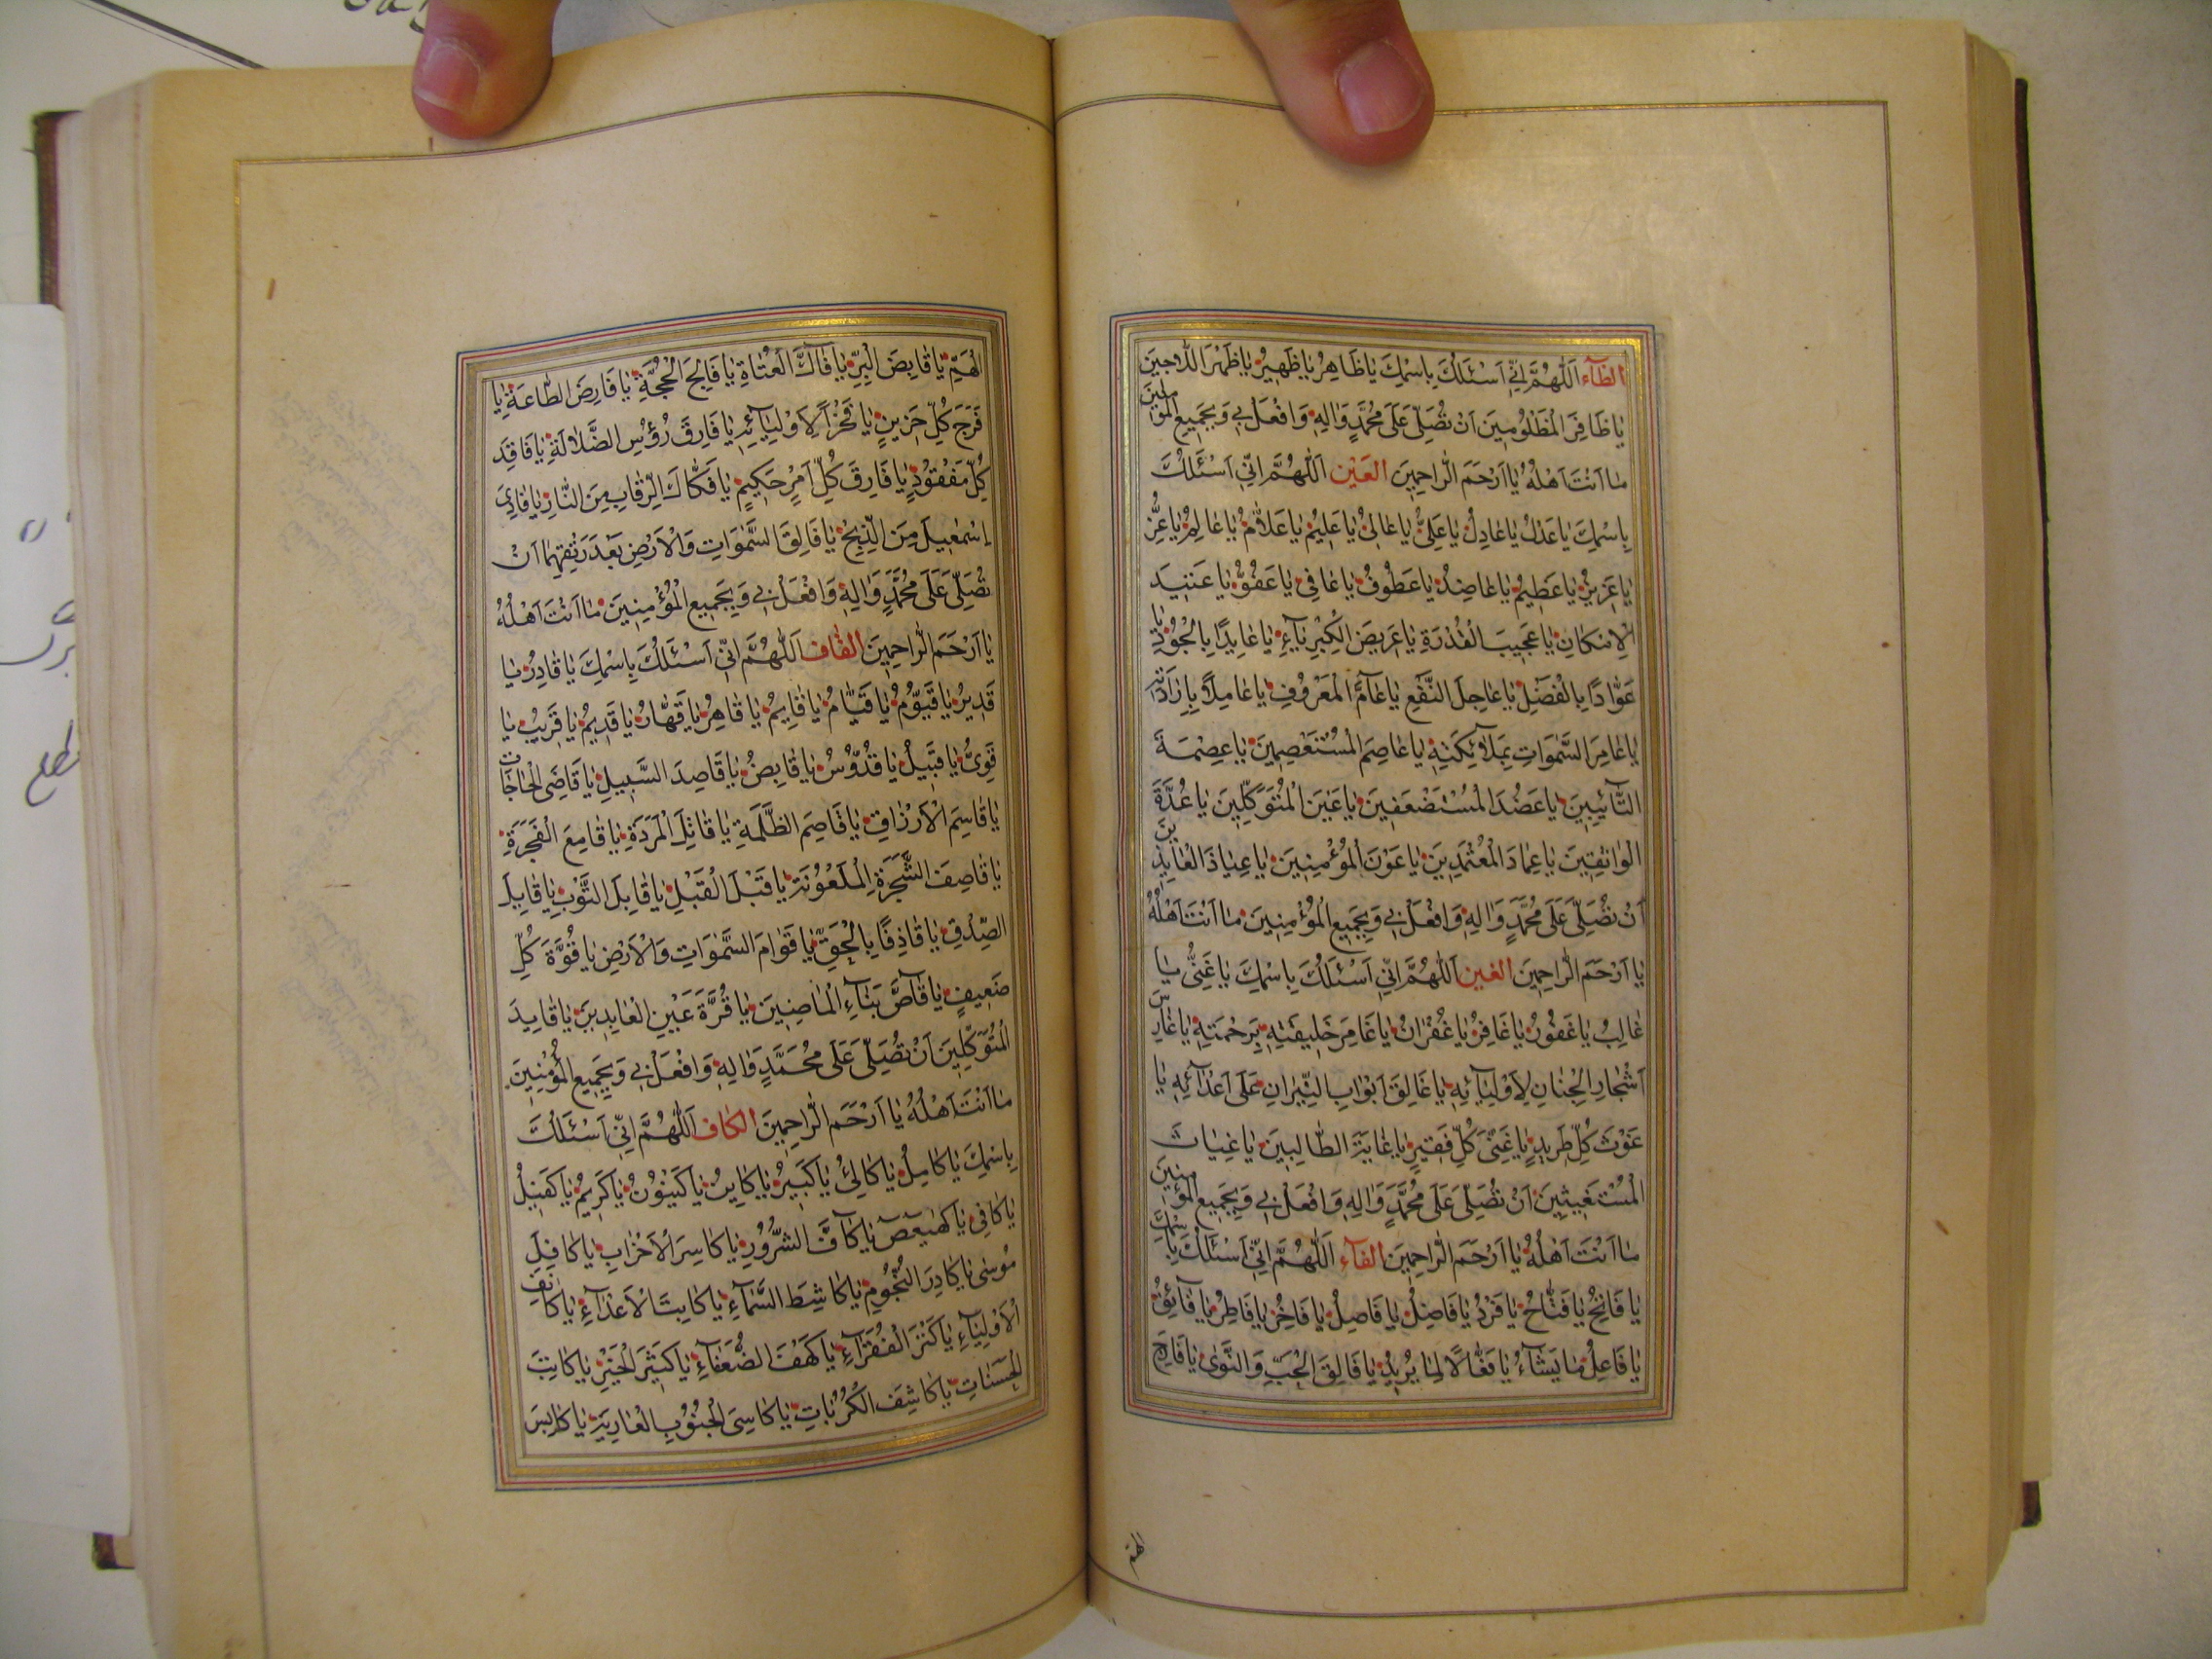 الظآء اَللّٰهُمَّ اِنّي اَسْئَلُكَ بِاسْمِكَ يٰا ظٰاهِرُ يٰا ظَهيرُ يٰا ظَهْرَ اللّٰاجينَ
يٰا ظٰافِرَ الْمَظْلُومينَ اَنْ تُصَلِّيَ عَلىٰ مُحَمَّدٍ وَاٰلِهِ وَافْعَلْ بي وَبِجَميعِ الْمُؤْمِنينَ
مٰا اَنْتَ اَهْلُهُ يٰا اَرْحَمَ الرّٰاحِمينَ العَيْن اَللّٰهُمَّ اِنّي اَسْئَلُكَ
بِاسْمِكَ يٰا عَدْلُ يٰا عٰادِلُ يٰا عَلِيُّ يٰا عٰالي يٰا عَليمُ يٰا عَلّٰامُ يٰا عٰالِمُ يٰا عِزُّ
يٰا عَزيزُ يٰا عَظيمُ يٰا عٰاضِدُ يٰا عَطُوفُ يٰا عٰافي يٰا عَفُوُّ يٰا عَتيدَ
الْاِمْكٰانِ يٰا عَجيبَ الْقُدْرَةِ يٰا عَريضَ الْكِبْرِيٰآءِ يٰا عٰايِدًا بِالْجُودِ يٰا
عَوّٰادًا بِالْفَضْلِ يٰا عٰاجِلَ النَّفْعِ يٰا عٰآمَّ الْمَعْرُوفِ يٰا عٰامِلًا بِاِرٰادَتِهِ
يٰا عٰامِرَ السَّمٰوَاتِ بِمَلٰائِكَتِهِ يٰا عٰاصِمَ الْمُسْتَعْصِمينَ يٰا عِصْمَةَ
التّٰآئِبينَ يٰا عَضُدَ الْمُسْتَضْعَفينَ يٰا عَيْنَ الْمُتَوَكِّلينَ يٰا عُدَّةَ
الْوٰاثِقينَ يٰا عِمٰادَ الْمُعْتَمِدينَ يٰا عَوْنَ الْمُؤْمِنينَ يٰا عِيٰاذَ الْعٰايِذينَ
اَنْ تُصَلِّيَ عَلىٰ مُحَمَّدٍ وَاٰلِهِ وَافْعَلْ بي وَبِجَميعِ الْمُؤْمِنينَ مٰا اَنْتَ اَهْلُهُ
يٰا اَرْحَمَ الرّٰاحِمينَ الغين اَللّٰهُمَّ اِنّي اَسْئَلُكَ بِاسْمِكَ يٰا غَنِيُّ يٰا
غٰالِبُ يٰا غَفُورُ يٰا غٰافِرُ يٰا غُفْرٰانُ يٰا غٰامِرَ خَليقَتِهِ بِرَحْمَتِهِ يٰا غٰارِسَ
اَشْجٰارِ الْجِنٰانِ لِاَوْلِيٰآئِهِ يٰا غٰالِقَ اَبْوٰابِ النّيرٰانِ عَلىٰ اَعْدٰآئِهِ يٰا
غَوْثَ كُلِّ طَريدٍ يٰا غِنىٰ كُلِّ فَقيرٍ يٰا غٰايَةَ الطّٰالِبينَ يٰا غِيٰاثَ
الْمُسْتَغيثينَ اَنْ تُصَلِّيَ عَلىٰ مُحَمَّدٍ وَاٰلِهِ وَافْعَلْ بي وَبِجَميعِ الْمُؤْمِنينَ
مٰا اَنْتَ اَهْلُهُ يٰا اَرْحَمَ الرّٰاحِمينَ الفآء اَللّٰهُمَّ اِنّي اَسْئَلُكَ بِاسْمِكَ
يٰا فٰاتِحُ يٰا فَتّٰاحُ يٰا فَرْدُ يٰا فٰاضِلُ يٰا فٰاصِلُ يٰا فٰاخِرُ يٰا فٰاطِرُ يٰا فٰائِقُ
يٰا فٰاعِلَ مٰا يَشٰآءُ يٰا فَعّٰالًا لِمٰا يُريدُ يٰا فٰالِقَ الْحَبِّ وَالنَّوىٰ يٰا فٰارِجَ
الهمّ
الْهَمِّ يٰا فٰايِضَ الْبِرِّ يٰا فٰاكَّ الْعُتٰاةِ يٰا فٰالِجَ الْحُجَّةِ يٰا فٰارِضَ الطّٰاعَةِ يٰا
فَرَجَ كُلِّ حَزينٍ يٰا فَخْرَ الْاَوْلِيٰآئِهِ يٰا فٰارِقَ رُؤُسِ الضَّلٰالَةِ يٰا فٰاقِدَ
كُلِّ مَفْقُودٍ يٰا فٰارِقَ كُلِّ اَمْرٍ حَكيمٍ يٰا فَكّٰاكَ الرِّقٰابِ مِنَ النّٰارِ يٰا فٰادِيَ
اِسْمٰعيلَ مِنَ الذَّبْحِ يٰا فٰالِقَ السَّمٰوَاتِ وَالْاَرْضِ بَعْدَ رَتْقِهِمٰا اَنْ
تُصَلِّيَ عَلىٰ مُحَمَّدٍ وَاٰلِهِ وَافْعَلْ بي وَبِجَميعِ الْمُؤْمِنينَ مٰا اَنْتَ اَهْلُهُ
يٰا اَرْحَمَ الرّٰاحِمينَ القٰاف اَللّٰهُمَّ اِنّي اَسْئَلُكَ بِاسْمِكَ يٰا قٰادِرُ يٰا
قَديرُ يٰا قَيُّومُ يٰا قَيّٰامُ يٰا قٰايِمُ يٰا قٰاهِرُ يٰا قَهّٰارُ يٰا قَديمُ يٰا قَريبُ يٰا
قَوِيُّ يٰا قَبيلُ يٰا قُدُّوسُ يٰا قٰابِضُ يٰا قٰاصِدَ السَّبيلِ يٰا قٰاضِيَ الْحٰاجٰاتِ
يٰا قٰاسِمَ الْاَرْزٰاقِ يٰا قٰاصِمَ الظَّلَمَةِ يٰا قٰاتِلَ الْمَرَدَةِ يٰا قٰامِعَ الْفَجَرَةِ
يٰا قٰاصِفَ الشَّجَرَةِ الْمَلْعُونَةِ يٰا قَبْلَ الْقَبْلِ يٰا قٰابِلَ التَّوْبِ يٰا قٰايِلَ
الصِّدْقِ يٰا قٰاذِفًا بِالْحَقِّ يٰا قَوٰامَ السَّمٰوَاتِ وَالْاَرْضِ يٰا قُوَّةَ كُلِّ
ضَعيفٍ يٰا قٰآصَّ نَبَاءِ الْمٰاضينَ يٰا قُرَّةَ عَيْنِ الْعٰابِدينَ يٰا قٰايِدَ
الْمُتَوَكِّلينَ اَنْ تُصَلِّيَ عَلىٰ مُحَمَّدٍ وَاٰلِهِ وَافْعَلْ بي وَبِجَميعِ الْمُؤْمِنينَ
مٰا اَنْتَ اَهْلُهُ يٰا اَرْحَمَ الرّٰاحِمينَ الكٰاف اَللّٰهُمَّ اِنّي اَسْئَلُكَ
بِاسْمِكَ يٰا كٰامِلُ يٰا كٰالِئُ يٰا كَبيرُ يٰا كٰاينُ يٰا كَيْنُونُ يٰا كَريمُ يٰا كَفيلُ
يٰا كٰافي يٰا كهٰيٰعص يٰا كٰآفَّ الشُّرُورِ يٰا كٰاسِرَ الْاَحْزٰابِ يٰا كٰافِلَ
مُوسىٰ يٰا كٰادِرَ النُّجُومِ يٰا كٰاشِطَ السَّمٰآءِ يٰا كٰابِتَ الْاَعْدٰآءِ يٰا كٰانِفَ
الْاَوْلِيٰآءِ يٰا كَنْزَ الْفُقَرٰآءِ يٰا كَهْفَ الضُّعَفٰآءِ يٰا كَثيرَ الْخَيْرِ يٰا كٰاتِبَ
الْحَسَنٰاتِ يٰا كٰاشِفَ الْكُرُبٰاتِ يٰا كٰاسِيَ الْجُنُوبِ الْعٰارِيَةِ يٰا كٰابِسَ